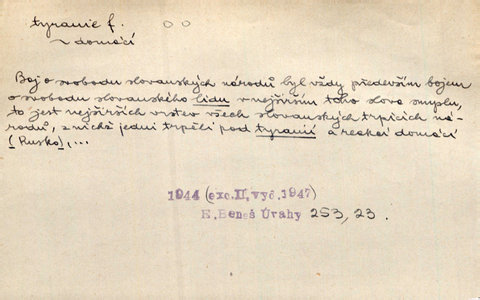 tyranie f. 00
~ domácí
Boj o svobodu slovanských národů byl vždy především bojem
o svobodu slovanského lidu v nejširším toho slova smyslu,
to jest nejširších vrstev všech slovanských trpících ná-
rodů, z nichž jedni trpěli pod tyranií a reakcí domácí
(Rusko), ...
1944 (exc.II, vyd.1947)
E.Beneš Úvahy 253, 23.